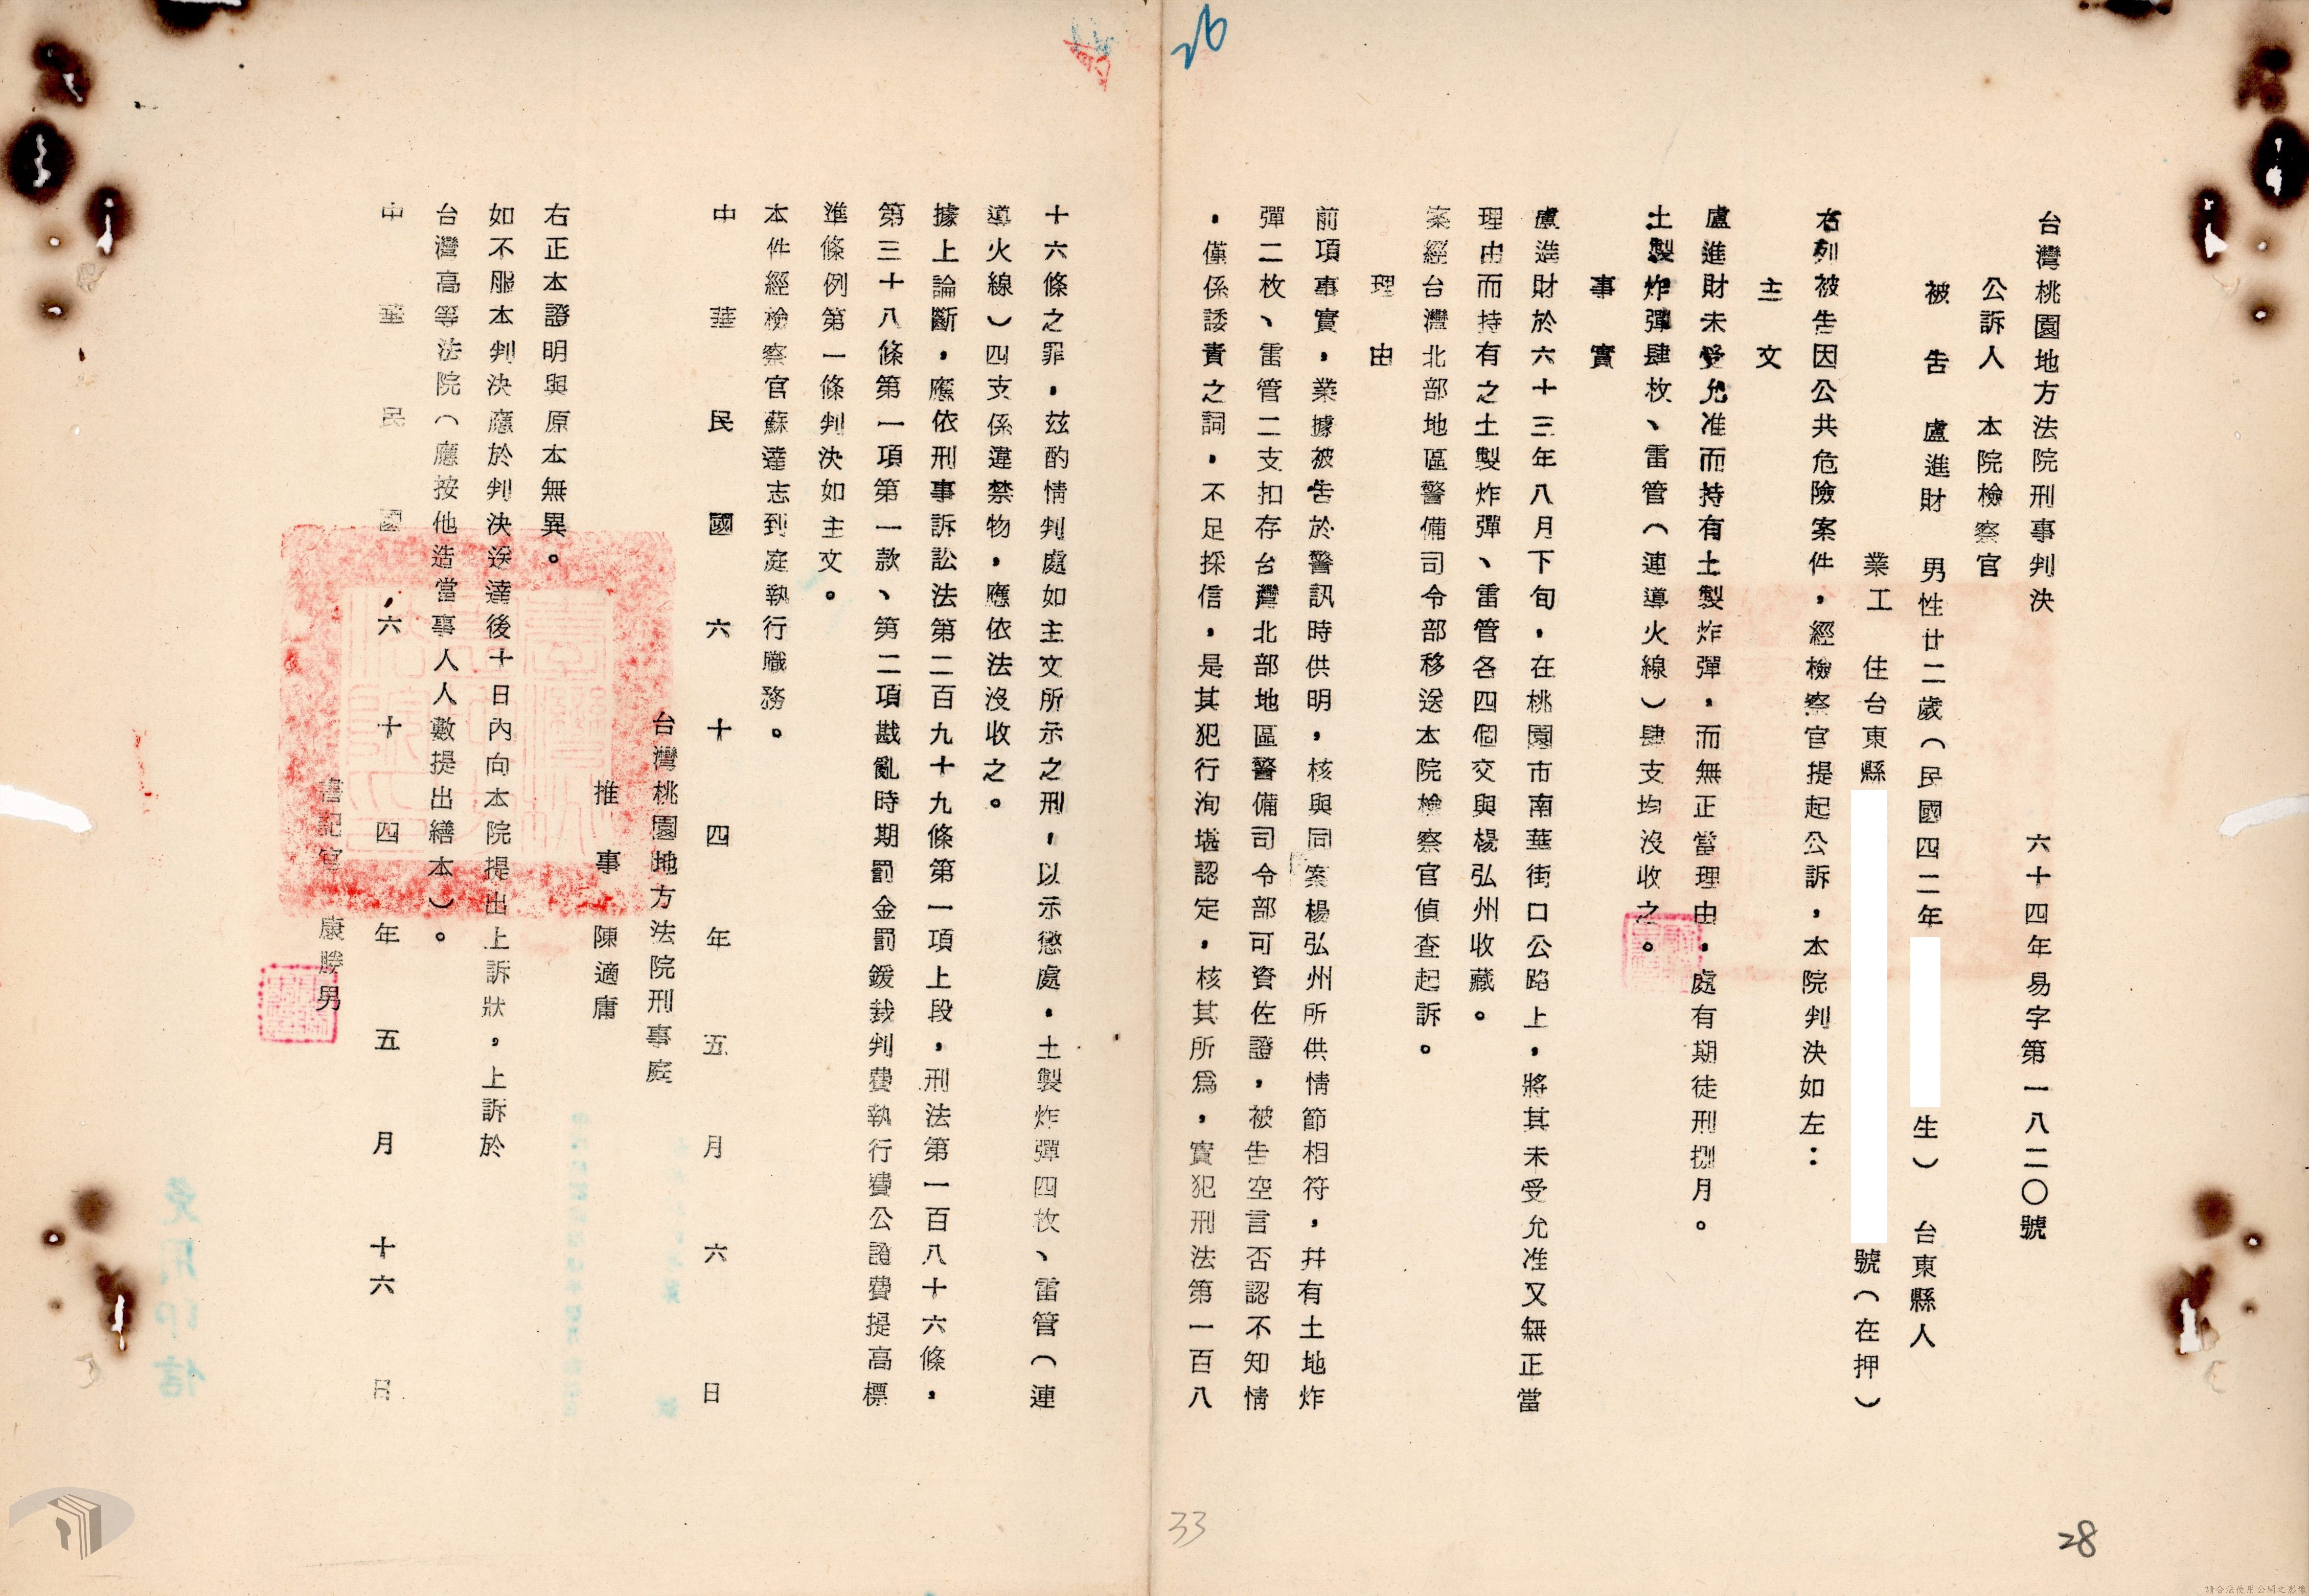 26
台灣桃園地方法院刑事判決　六十四年易字第一八二〇號
公訴人　本院檢察官
被告　盧進財　男性廿二歲（民國四二年　生）　台東縣人
業工　住台東縣　號（在押）
右列被告因公共危險案件，經檢察官提起公訴，本院判決如左：
主文
盧進財未受允准而持有土製炸彈，而無正當理由，處有期徒刑捌月。
土製炸彈肆枚、雷管（連導火線）肆支均沒收之。
事實
盧進財於六十三年八月下旬，在桃園市南華街口公路上，將其未受允准又無正當
理由而持有之土製炸彈、雷管各四個交與楊弘州收藏。
案經台灣北部地區警備司令部移送本院檢察官偵查起訴。
理由
前項事實，業據被告於警訊時供明，核與同案楊弘州所供情節相符，幷有土地炸
彈二枚、雷管二支扣存台灣北部地區警備司令部可資佐證，被告空言否認不知情
，僅係諉責之詞，不足採信，是其犯行洵堪認定，核其所為，實犯刑法第一百八
十六條之罪，茲酌情判處如主文所示之刑，以示懲處，土製炸彈四枚、雷管（連
導火線）四支係違禁物，應依法沒收之。
據上論斷，應依刑事訴訟法第二百九十九條第一項上段，刑法第一百八十六條，
第三十八條第一項第一款、第二項戡亂時期罰金罰鍰裁判費執行費公證費提高標
準條例第一條判決如主文。
本件經檢察官蘇達志到庭執行職務。
中華民國六十四年五月六日
台灣桃園地方法院刑事庭
推事　陳適庸
右正本證明與原本無異。
如不服本判決應於判決送達後十日內向本院提出上訴狀，上訴於
台灣高等法院（應按他造當事人人數提出繕本）。
中華民國六十四年五月十六日
書記官　康勝男
33
28
請合法使用公開之影像